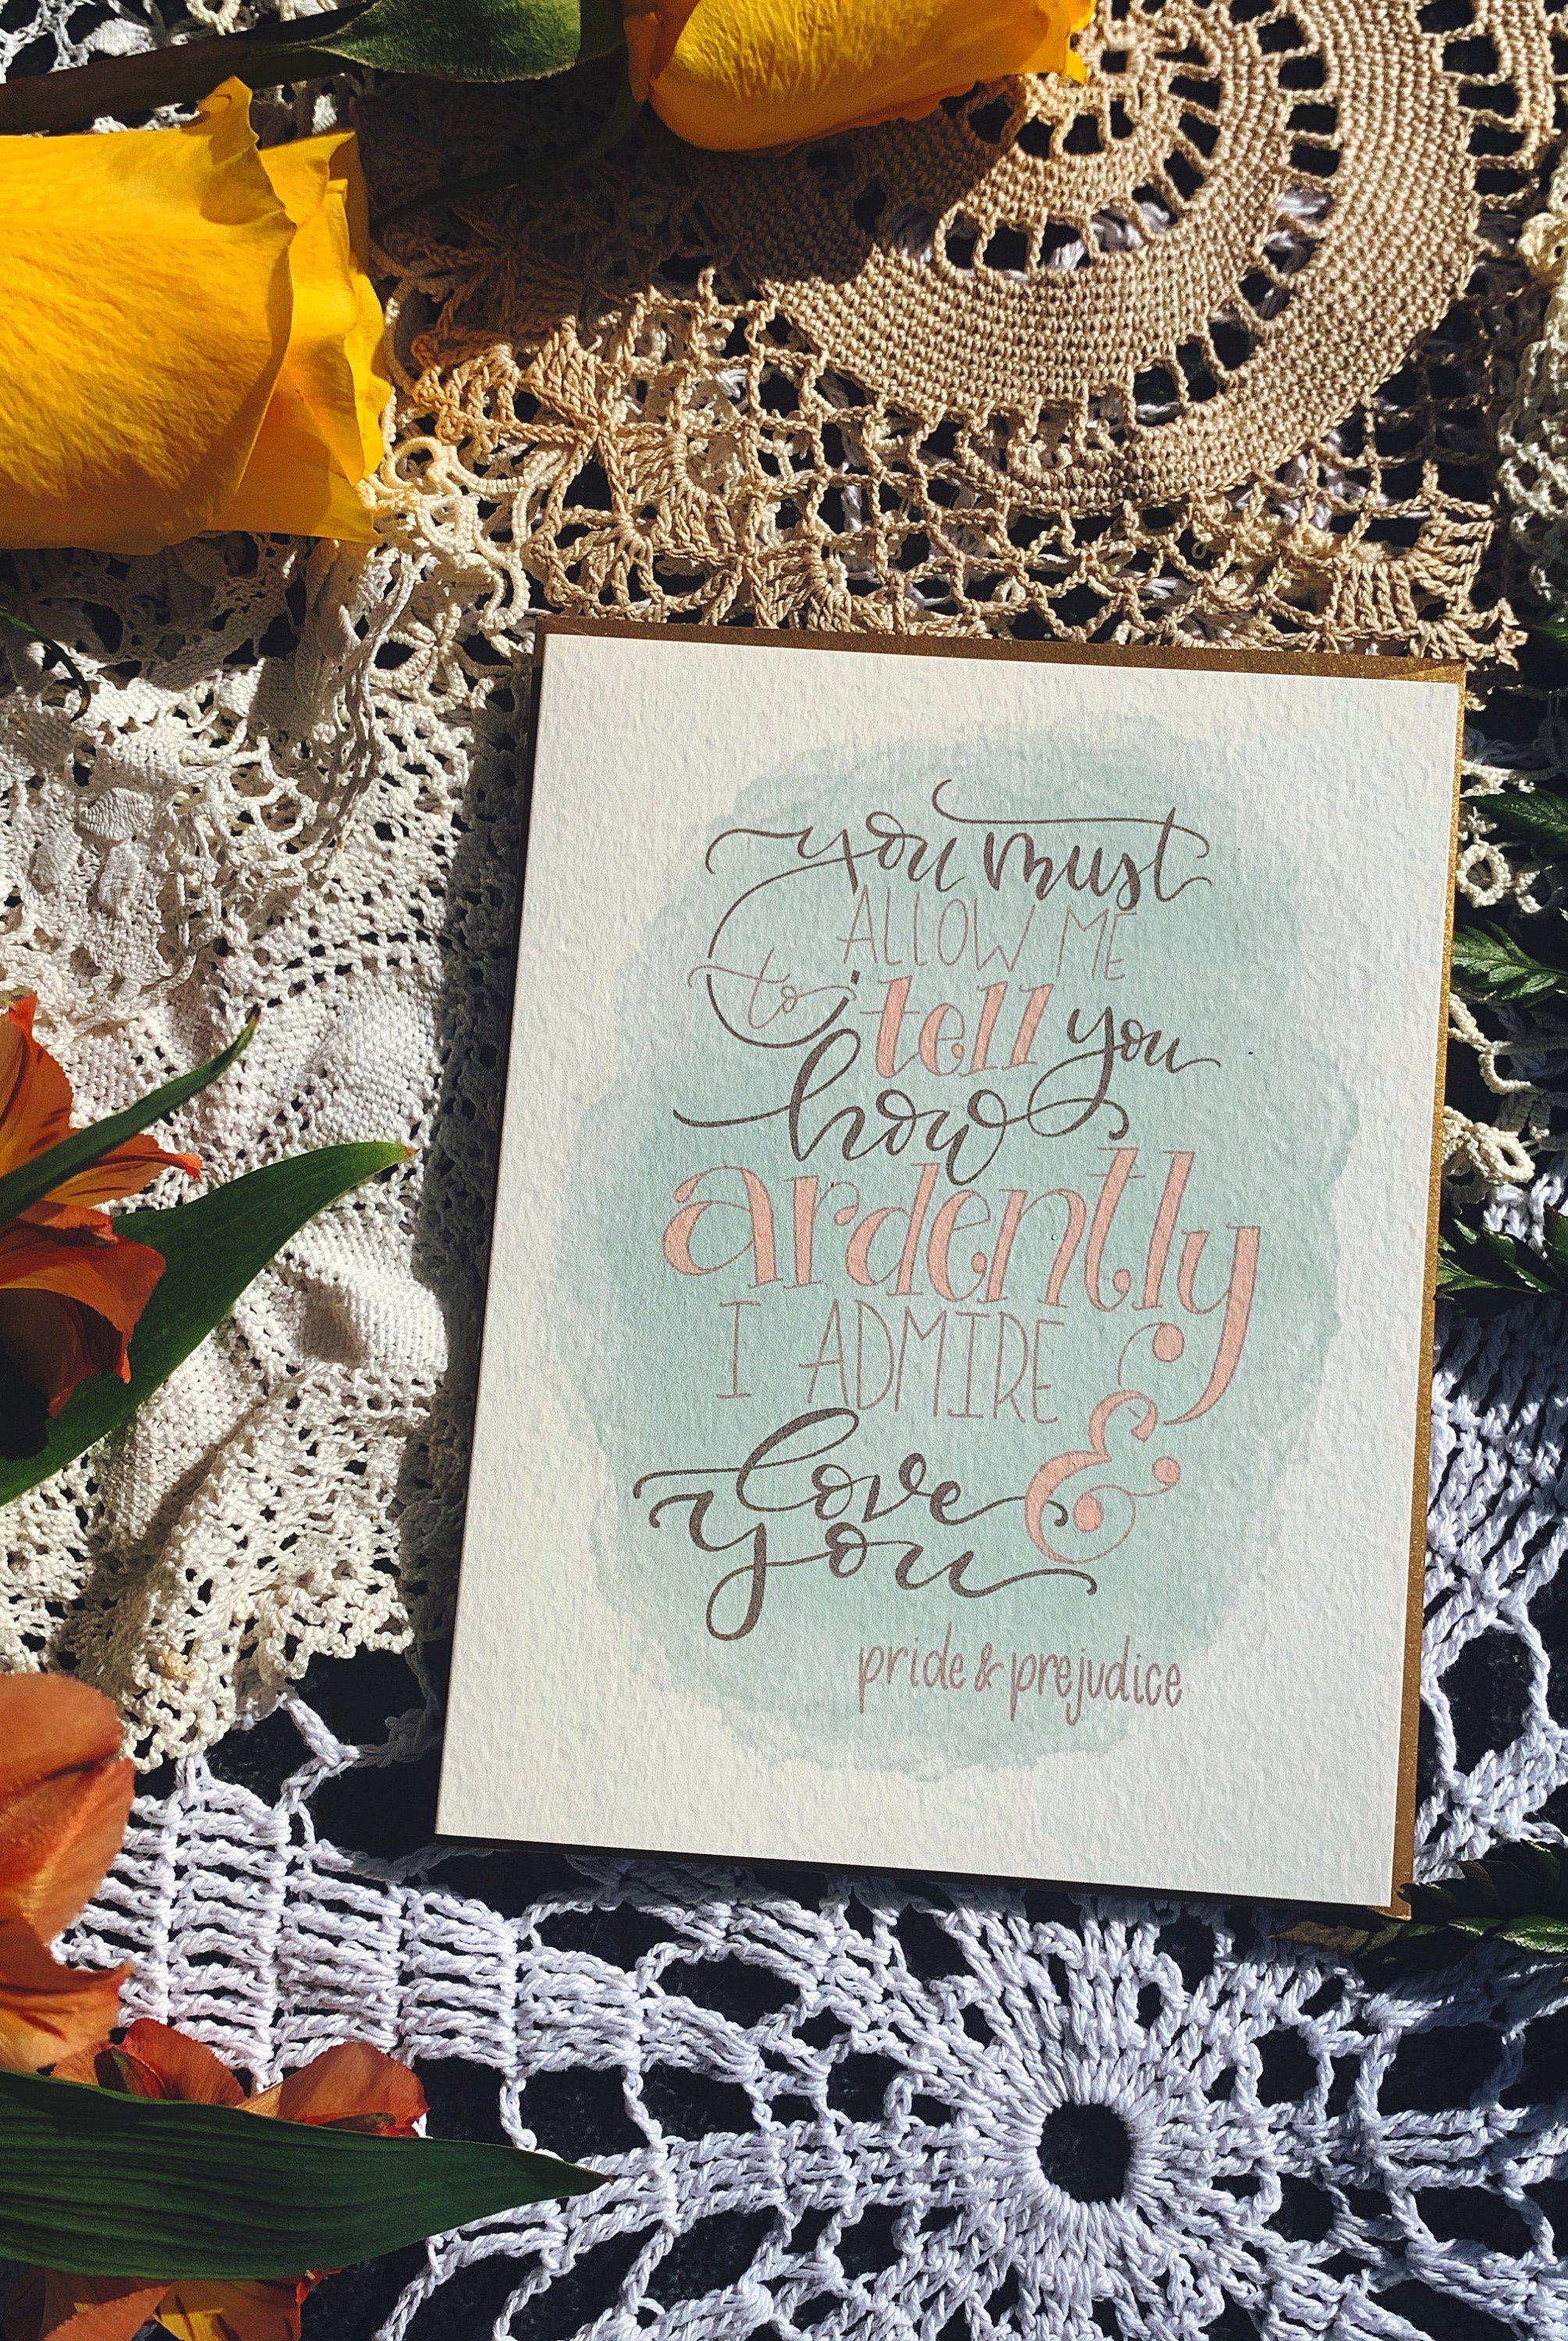 you must
ALLOW ME
to tell you
how
ardently
I ADMIRE
& love
you
pride & prejudice